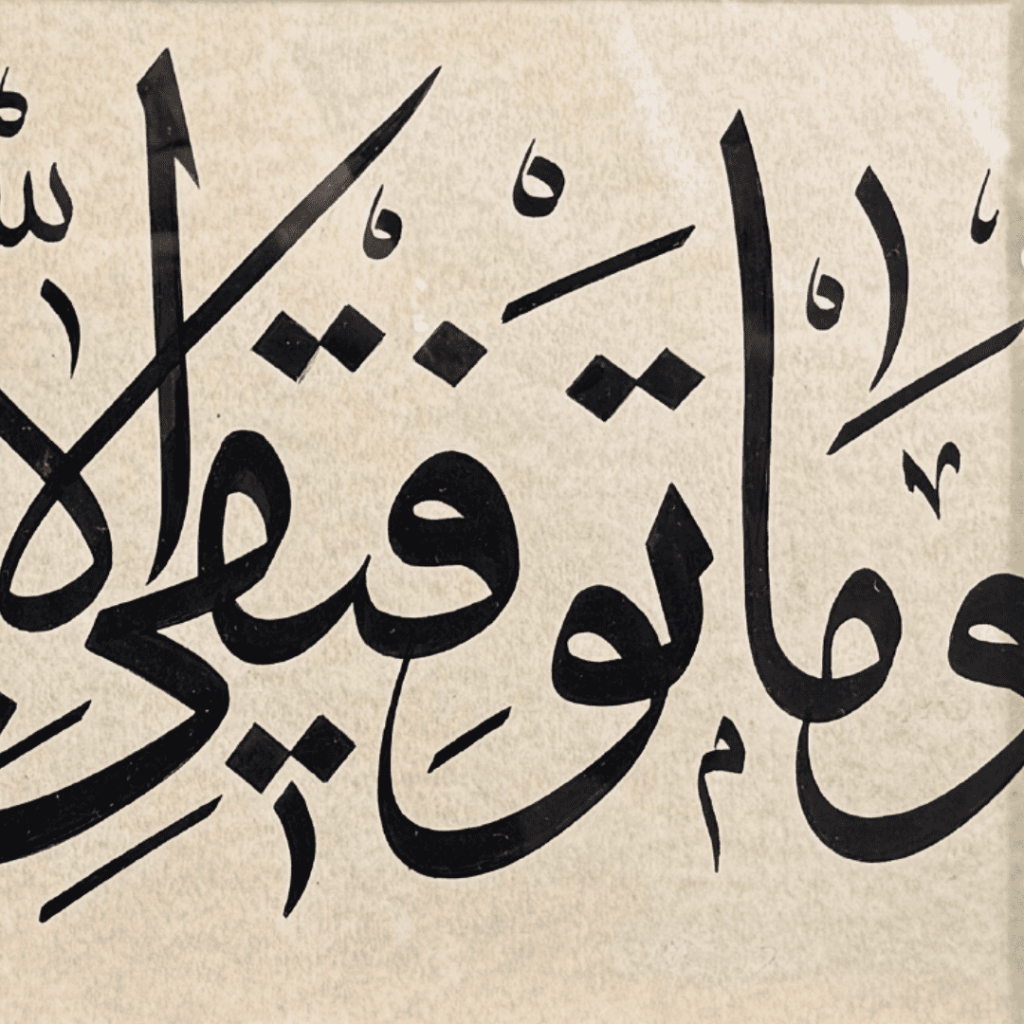 وَمَا تَوْفِيقِي إِلَّا